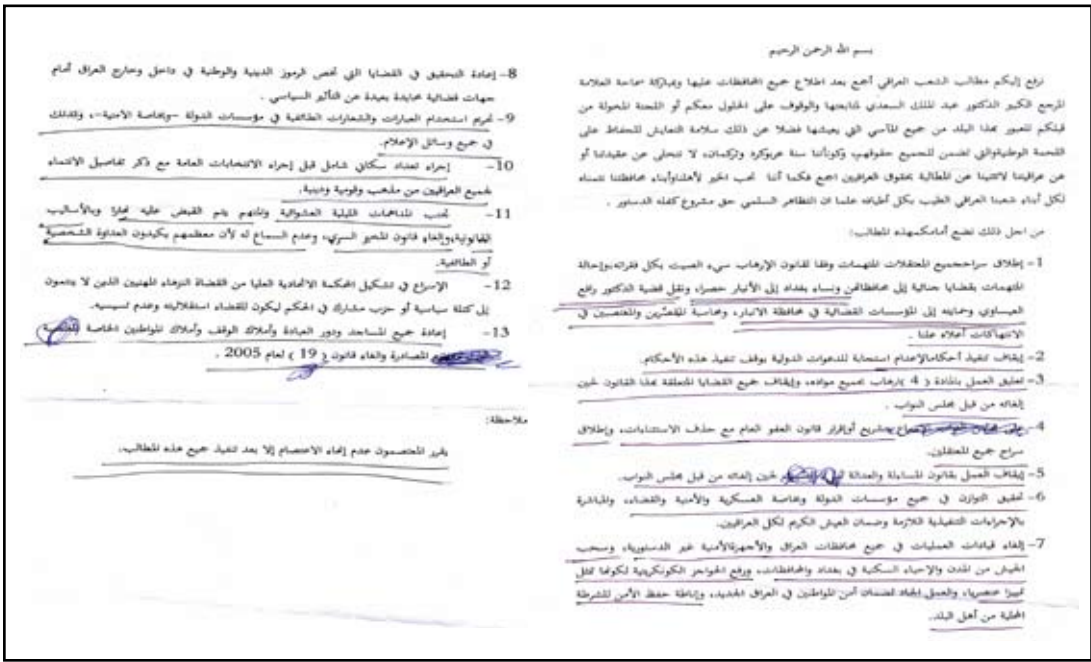 بسم الله الرحمن الرحيم
نرفع إليكم مطالب الشعب العراقي أجمع بعد اطلاع جميع المحافظات عليها وبمباركة سماحة العلامة
المرجع الكبير الدكتور عبد الملك السعدي لمتابعتها والوقوف على الحلول معكم أو اللجنة المخولة من
قبلكم للعبور بهذا البلد من جميع المآسي التي يعيشها فضلا عن ذلك سلامة التعايش للحفاظ على
اللحمة الوطنيةوالتي تضمن للجميع حقوقهم، وكوننا سنة عربوكرد وتركمان، لا نتخلى عن عقيدتنا أو
عن عراقيتنا لاتثنينا عن المطالبة بحقوق العراقيين اجمع فكما أننا نحب الخير لأهلناوأبناء محافظتنا نتمناه
لكل أبناء شعبنا العراقي الطيب بكل أطيافه علما ان التظاهر السلمي حق مشروع كفله الدستور .
من اجل ذلك نضع أمامكمهذه المطالب:
1- إطلاق سراحجميع المعتقلات المتهمات وفقا لقانون الإرهاب سيء الصيت بكل فقراته،وإحالة
المتهمات بقضايا جنائية إلى محافظاتهن ونساء بغداد إلى الأنبار حصرا، ونقل قضية الدكتور رافع
العيساوي وحمايته إلى المؤسسات القضائية في محافظة الانبار، ومحاسبة المقصّرين والمغتصبين في
الانتهاكات أعلاه علنا .
2- إيقاف تنفيذ أحكامالإعدام استجابة للدعوات الدولية بوقف تنفيذ هذه الأحكام.
3- تعليق العمل بالمادة ( 4 )إرهاب بجميع موادها، وإيقاف جميع القضايا المتعلقة بهذا القانون لحين
إلغائه من قبل مجلس النواب .
4- بتشريع أوإقرار قانون العفو العام مع حذف الاستثناءات، وإطلاق
سراح جميع المعتقلين.
5- إيقاف العمل بقانون المساءلة والعدالة لحين إلغائه من قبل مجلس النواب.
6- تحقيق التوازن في جميع مؤسسات الدولة وبخاصة العسكرية والأمنية والقضاء، والمباشرة
بالإجراءات التنفيذية اللازمة وضمان العيش الكريم لكل العراقيين.
7- إلغاء قيادات العمليات في جميع محافظات العراق والأجهزةالأمنية غير الدستورية، وسحب
الجيش من المدن والإحياء السكنية في بغداد والمحافظات، ورفع الحواجز الكونكريتية لكونها تمثل
تمييزا عنصريا، والعمل الجاد لضمان أمن المواطنين في العراق الجديد، وإناطة حفظ الأمن للشرطة
المحلية من أهل البلد.
8- إعادة التحقيق في القضايا التي تخص الرموز الدينية والوطنية في داخل وخارج العراق أمام
جهات قضائية محايدة بعيدة عن التأثير السياسي .
9- تحريم استخدام العبارات والشعارات الطائفية في مؤسسات الدولة -وبخاصة الامنية-، وكذلك
في جميع وسائل الإعلام.
10- إجراء تعداد سكاني شامل قبل إجراء الانتخابات العامة مع ذكر تفاصيل الانتماء
لجميع العراقيين من مذهب وقومية ودينية.
11- تجنب المداهمات الليلية العشوائية والمتهم يتم القبض عليه نهارا وبالأساليب
القانونية،وإلغاء قانون المخبر السري، وعدم السماح له لأن معظمهم يكيدون العداوة الشخصية
أو الطائفية.
12- الإسراع في تشكيل المحكمة الاتحادية العليا من القضاة النزهاء المهنيين الذين لا ينتمون
إلى كتلة سياسية أو حزب مشارك في الحكم ليكون للقضاء استقلاليته وعدم تسييسه.
13- إعادة جميع المساجد ودور العبادة وأملاك الوقف وأملاك المواطنين الخاصة
المصادرة والغاء قانون ( 19 ) لعام 2005 .
ملاحظة:
يقرر المعتصمون عدم إنهاء الاعتصام إلا بعد تنفيذ جميع هذه المطالب.